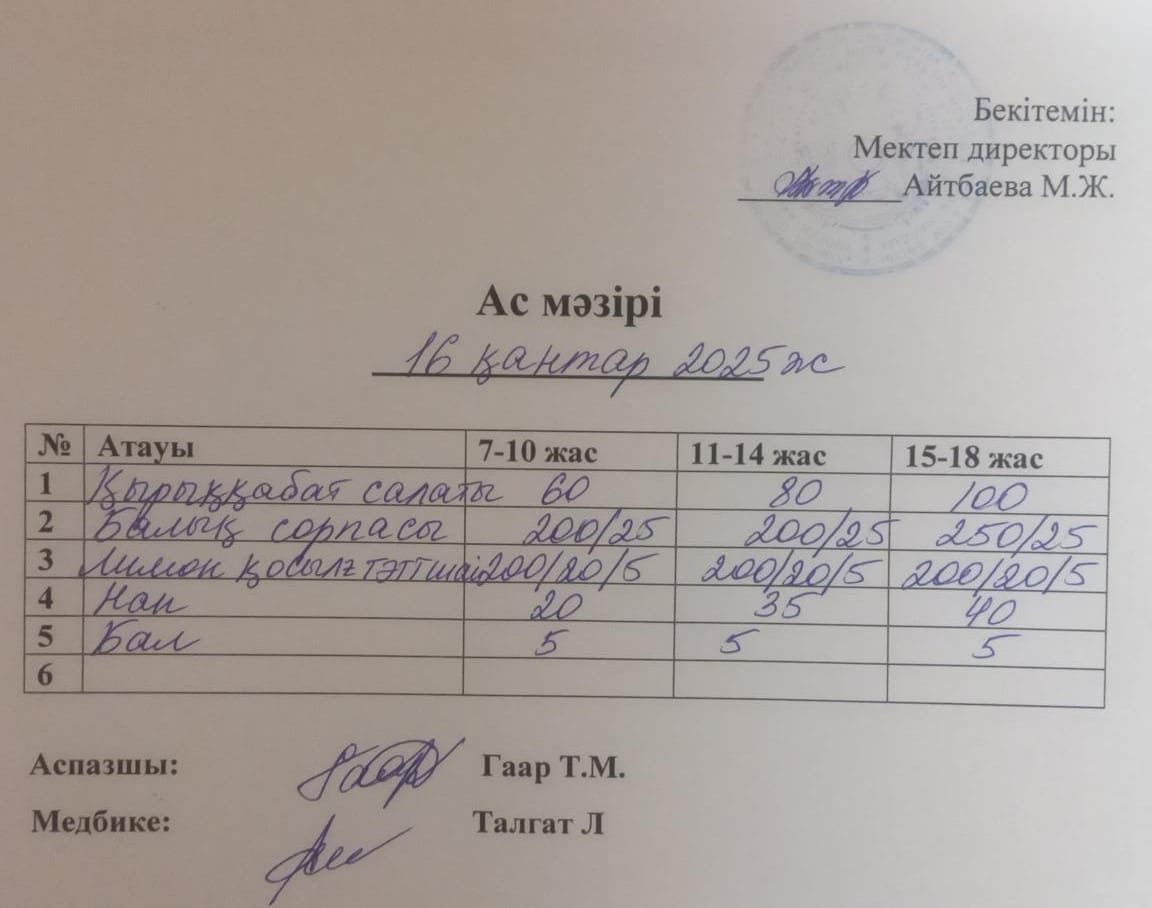 Бекітемін:
Мектеп директоры
Айтбаева М.Ж.
Ас мәзірі
16 қантар 2025 ж
№ Атауы 7-10 жас 11-14 жас 15-18 жас
1 Қырыққабат салаты 60 80 100
2 Балық сорпасы 200/25 200/25 250/25
3 Лимон қосылғ тәтті шай 200/20/5 200/20/5 200/20/5
4 Нан 20 35 40
5 Бал 5 5 5
6
Аспазшы: Гаар Т.М.
Медбике: Талгат Л